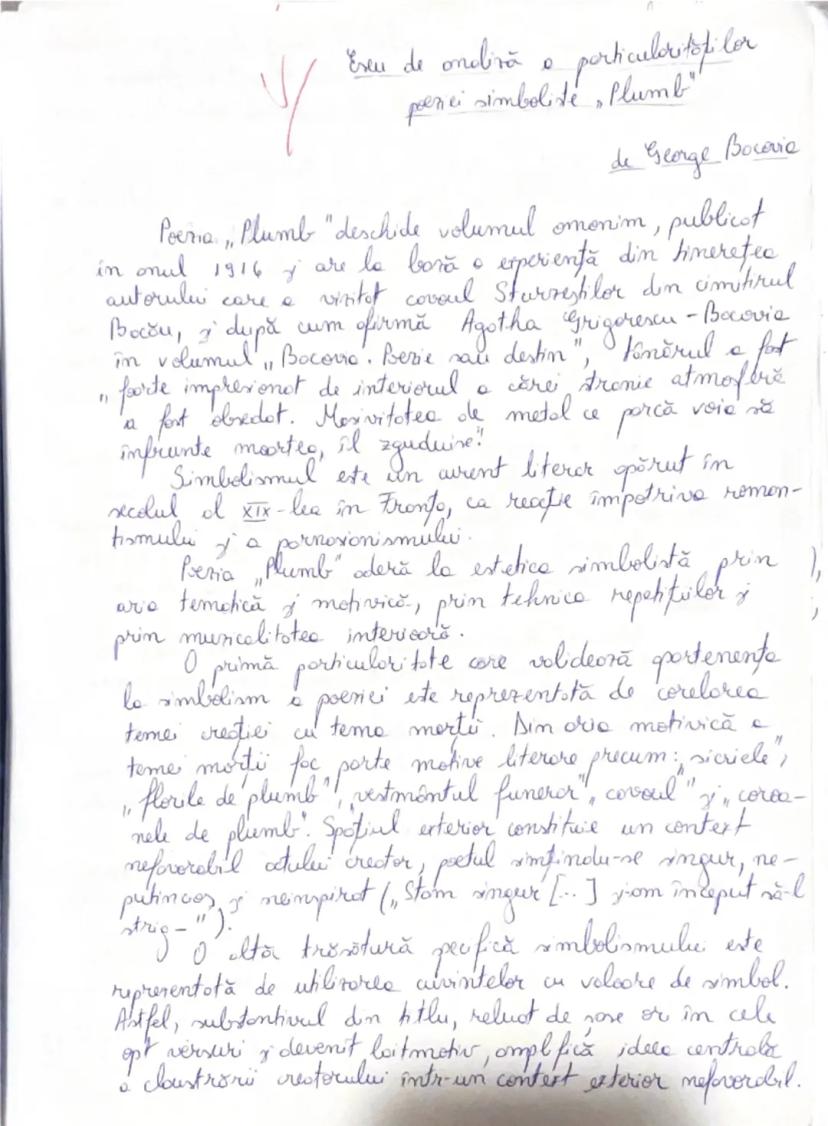 Eseu de analiză a particularităților
poeziei simboliste „Plumb"
de George Bacovia
Poezia „Plumb" deschide volumul omonim, publicat
în anul 1916 și are la bază o experiență din tinerețea
autorului care a vizitat cavoul Sturzeștilor din cimitirul
Bacău, și după cum afirmă Agatha Grigorescu-Bacovia
în volumul „Bacovia. Poezie sau destin", tânărul a fost
„foarte impresionat de interiorul a cărei stranie atmosferă
a fost obsedat. Masivitatea de metal ce parcă voia să
înfrunte moartea, îl zguduise."
Simbolismul este un curent literar apărut în
secolul al XIX-lea în Franța, ca reacție împotriva roman-
tismului și a parnasianismului.
Poezia „Plumb" aderă la estetica simbolistă prin
aria tematică și motivică, prin tehnica repetițiilor și
prin muzicalitatea interioară.
O primă particularitate care validează apartenența
la simbolism a poeziei este reprezentată de corelarea
temei creației cu tema morții. Din aria motivică a
temei morții fac parte motive literare precum: „sicriele",
„florile de plumb", „vestmântul funerar", „cavoul" și „coroa-
nele de plumb". Spațiul exterior constituie un context
nefavorabil actului creator, poetul simțindu-se singur, ne-
putincios și neinspirat („Stam singur [...] și-am început să-l
strig-").
O altă trăsătură specifică simbolismului este
reprezentată de utilizarea cuvintelor cu valoare de simbol.
Astfel, substantivul din titlu, reluat de șase ori în cele
opt versuri și devenit laitmotiv, amplifică ideea centrală
a claustrării creatorului într-un context exterior nefavorabil.